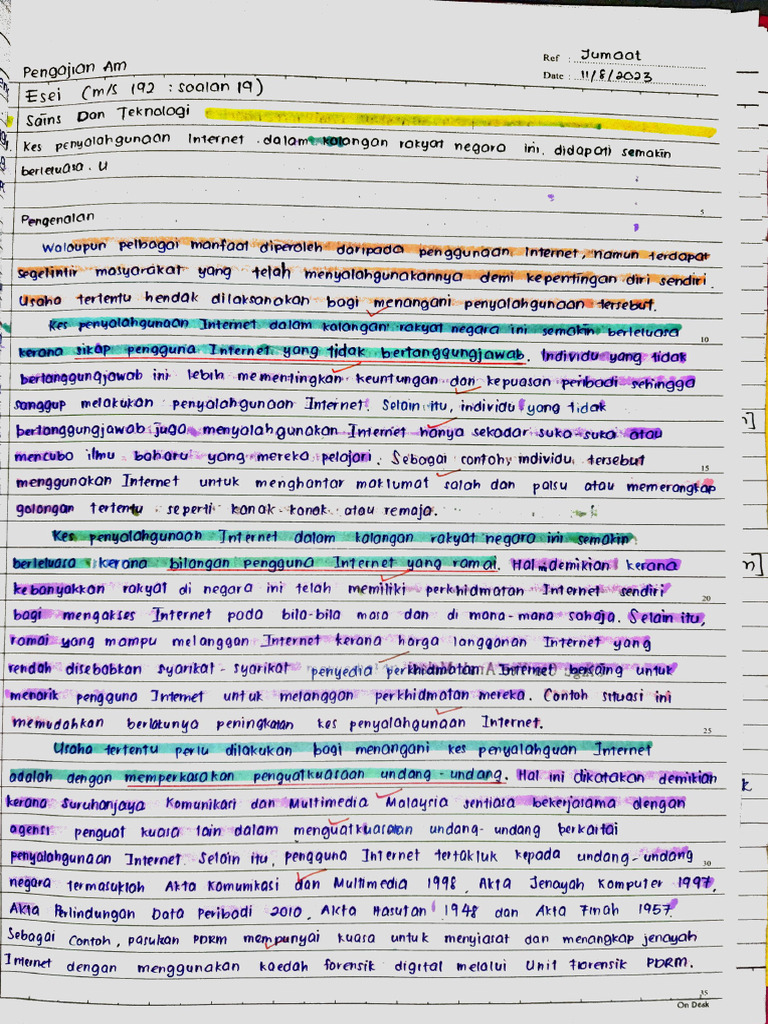 Ref : Jumaat
Pengajian Am
Date : 11/8/2023
Esei (m/s 192 : soalan 19)
Sains Dan Teknologi
Kes penyalahgunaan Internet dalam kalangan rakyat negara ini didapati semakin
berleluasa. U
5
Pengenalan
Walaupun pelbagai manfaat diperoleh daripada penggunaan Internet, namun terdapat
segelintir masyarakat yang telah menyalahgunakannya demi kepentingan diri sendiri.
Usaha tertentu hendak dilaksanakan bagi menangani penyalahgunaan tersebut.
Kes penyalahgunaan Internet dalam kalangan rakyat negara ini semakin berleluasa
10
kerana sikap pengguna Internet yang tidak bertanggungjawab. Individu yang tidak
bertanggungjawab ini lebih mementingkan keuntungan dan kepuasan peribadi sehingga
sanggup melakukan penyalahgunaan Internet. Selain itu, individu yang tidak
bertanggungjawab juga menyalahgunakan Internet hanya sekadar suka-suka atau
mencuba ilmu baharu yang mereka pelajari. Sebagai contoh, individu tersebut
15
menggunakan Internet untuk menghantar maklumat salah dan palsu atau memerangkap
golongan tertentu seperti kanak-kanak atau remaja.
Kes penyalahgunaan Internet dalam kalangan rakyat negara ini semakin
berleluasa kerana bilangan pengguna Internet yang ramai. Hal demikian kerana
20
kebanyakkan rakyat di negara ini telah memiliki perkhidmatan Internet sendiri
bagi mengakses Internet pada bila-bila masa dan di mana-mana sahaja. Selain itu,
ramai yang mampu melanggan Internet kerana harga langganan Internet yang
rendah disebabkan syarikat-syarikat penyedia perkhidmatan Internet bersaing untuk
menarik pengguna Internet untuk melanggan perkhidmatan mereka. Contoh situasi ini
25
memudahkan berlakunya peningkatan kes penyalahgunaan Internet.
Usaha tertentu perlu dilakukan bagi menangani kes penyalahguan Internet
adalah dengan memperkasakan penguatkuasaan undang-undang. Hal ini dikatakan demikian
kerana Suruhanjaya Komunikasi dan Multimedia Malaysia sentiasa bekerjasama dengan
agensi penguat kuasa lain dalam menguatkuasakan undang-undang berkaitan
30
penyalahgunaan Internet. Selain itu, pengguna Internet tertakluk kepada undang-undang
negara termasuklah Akta Komunikasi dan Multimedia 1998, Akta Jenayah Komputer 1997,
Akta Perlindungan Data Peribadi 2010, Akta Hasutan 1948 dan Akta Fitnah 1957.
Sebagai Contoh, pasukan PDRM mempunyai kuasa untuk menyiasat dan menangkap jenayah
Internet dengan menggunakan kaedah forensik digital melalui Unit Forensik PDRM.
35
On Desk